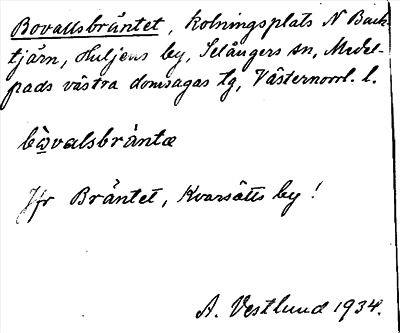 Bovallsbräntet, kolningsplats N Back
tjärn, Huljens by, Selångers sn, Medel-
pads västra domsagas tg, Västernorrl. l.
bὼvalsbrántæ
Jfr Bräntet, Kvarsätts by!
A. Vestlund 1934.